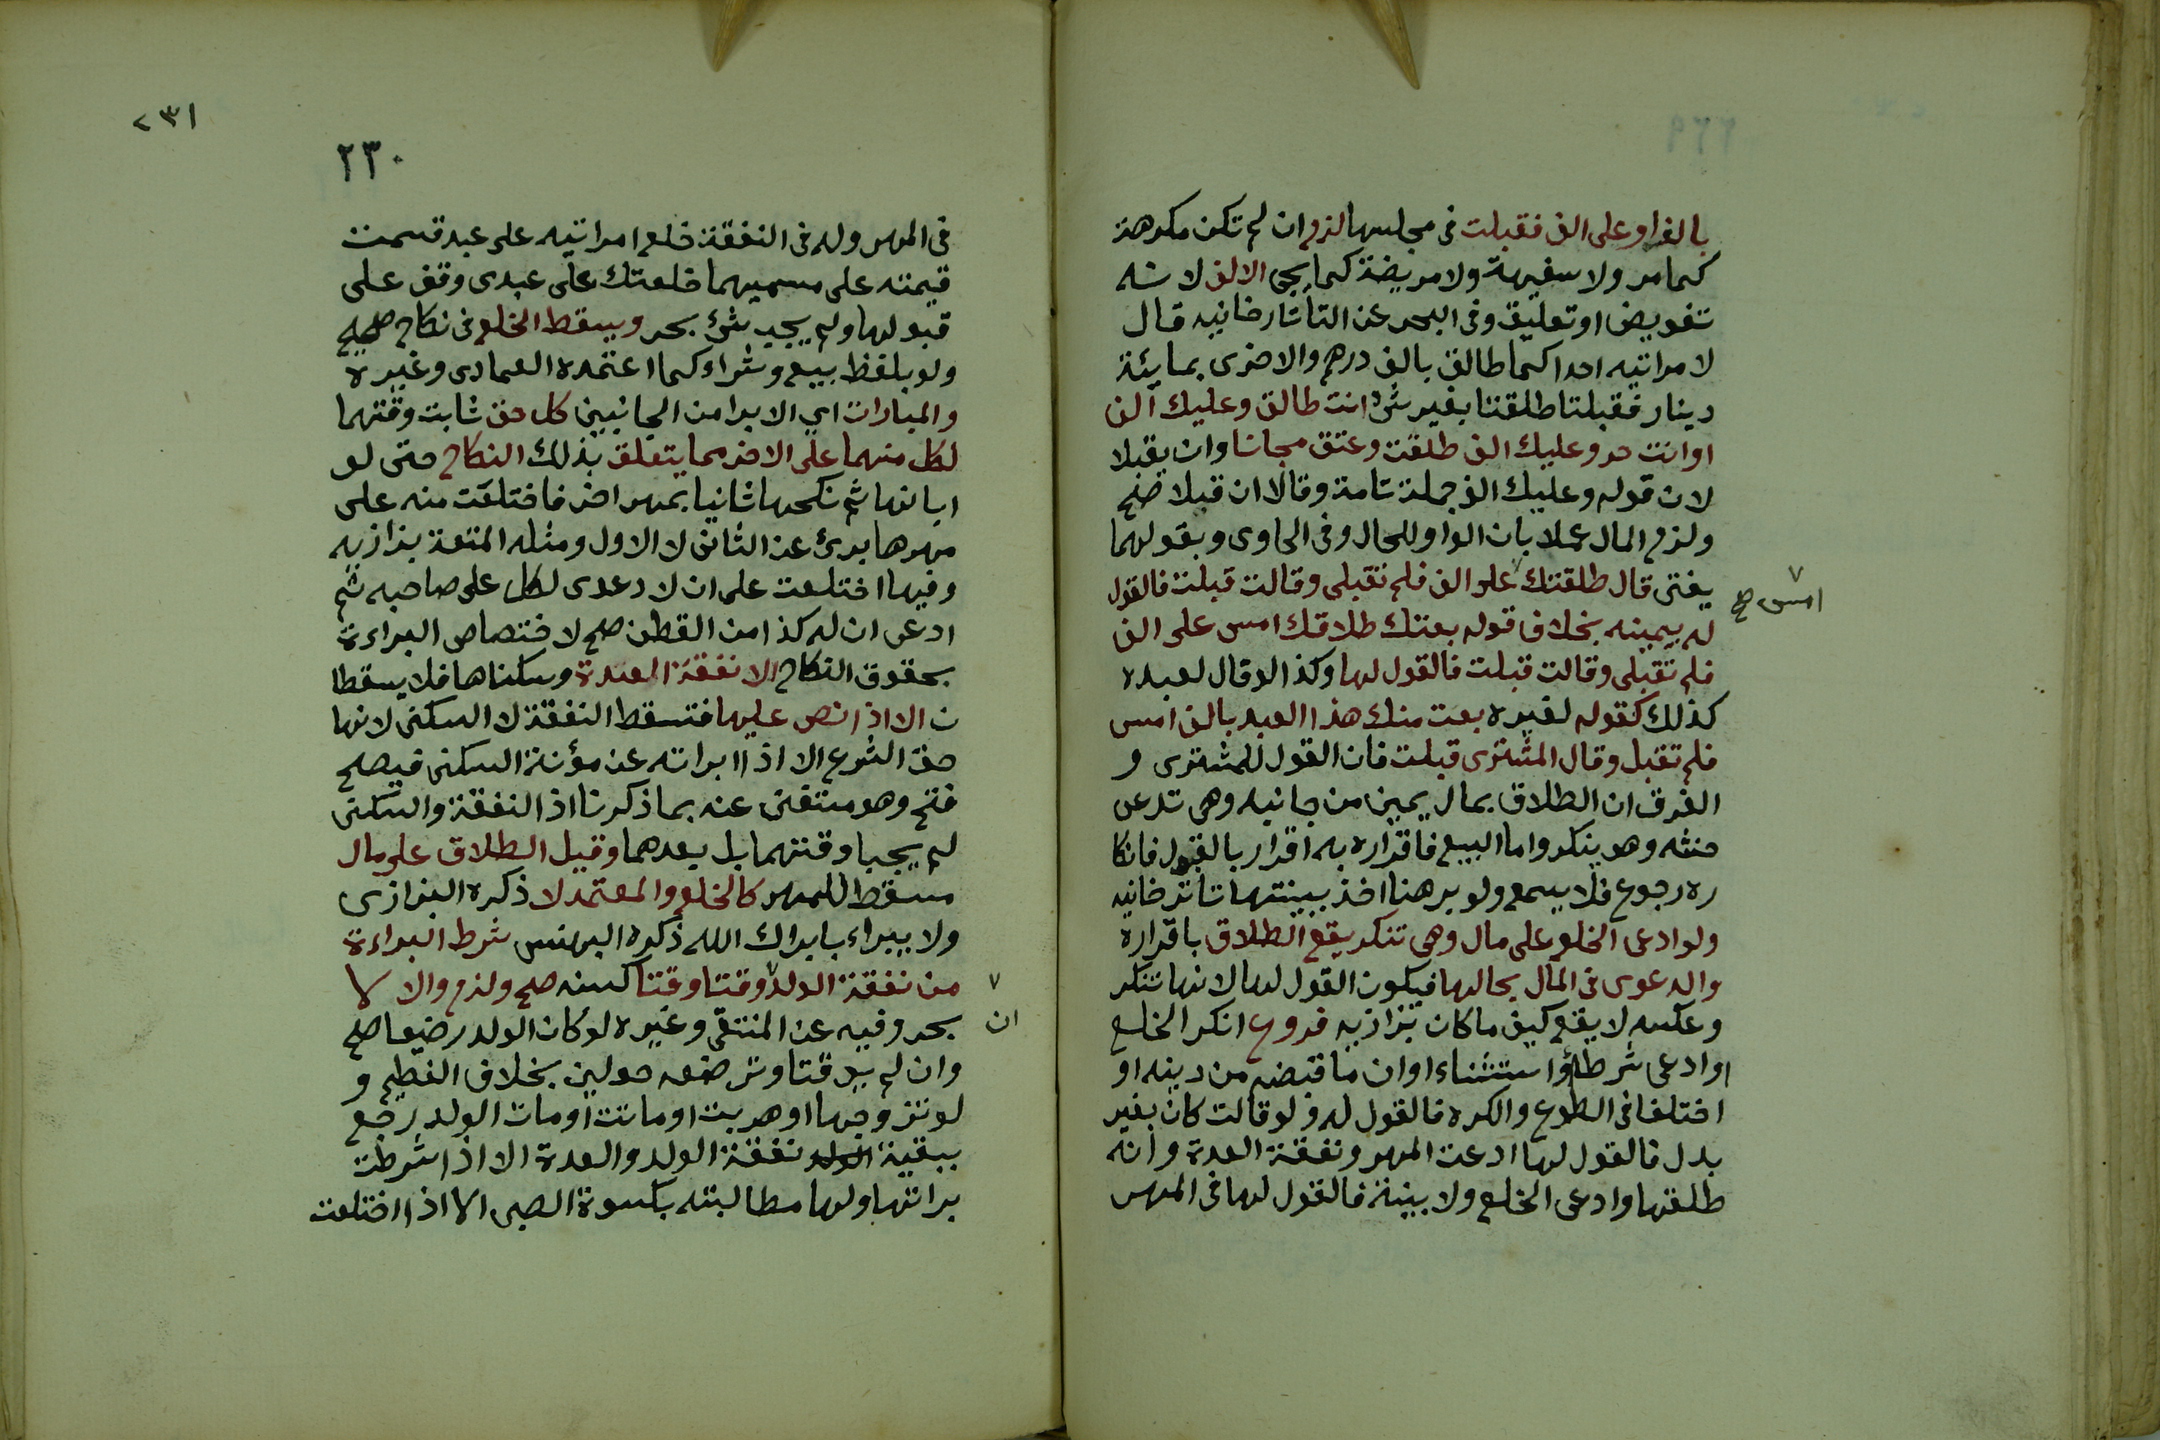 بالف او على الف فقبلت فى مجلسها لزم ان لم تكن مكرهة
كما مر ولا سفيهة ولا مريضة كما يجى الالف لانه
تفويض او تعليق وفى البحر عن التاتارخانيه قال
لامراتيه احداكما طالق بالف درهم والاخرى بمايئة
دينار فقبلتا طلقتا بغير شئ انت طالق وعليك الف
اوانت حر وعليك الف طلقت وعتق مجانا وان يقبلا
لان قوله وعليك الف جملة تامة وقالا ان قبلا صح
ولزم المال عملا بان الواو للحال وفى الحاوى وبقولهما
يفتى قال طلقتك على الف فلم تقبلى وقالت قبلت فالقول
امس صح
له بيمينه بخلاف قوله بعتك طلاقك امس على الف
فلم تقبلى وقالت قبلت فالقول لها وكذا لو قال لعبده
كذلك كقوله لغيره بعت منك هذا العبد بالف امس
فلم تقبل وقال المشترى قبلت فان القول للمشترى و
الفرق ان الطلاق بمال يمين من جانبه وهى تدعى
حنثه وهو ينكر واما البيع فاقراره به اقرار بالقبول فانكا
ره رجوع فلا يسمع ولو برهنا اخذ ببينتها تاترخانيه
ولو ادعى الخلع على مال وهى تنكر يقع الطلاق باقراره
والدعوى فى المال بحالها فيكون القول لها لانها تنكر
وعكسه لا يقع كيف ما كان بزازيه فروع انكر الخلع
اوادعى شرطا او استثناء او ان ما قبضه من دينه او
اختلفا فى الطوع والكره فالقول له ولو قالت كان بغير
بدل فالقول لها ادعت المهر ونفقة العدة وانه
طلقها وادعى الخلع ولا بينة فالقول لها فى المهر
٢٣١
٢٣٠
فى المهر وله فى النفقة خلع امراتيه على عبد قسمت
قيمته على مسميهما خلعتك على عبدى وقف على
قبولها ولم يجب شئ بحر ويسقط الخلع فى نكاح صحيح
ولو بلفظ بيع وشراء كما اعتمده العمادى وغيره
والمبارات اي الابرا من الجانبين كل حق ثابت وقتهما
لكل منهما على الاخر مما يتعلق بذلك النكاح حتى لو
ابانها ثم نكحها ثانيا بمهر اخر فاختلعت منه على
مهرها برئ عن الثانى لا الاول ومثله المتعة بزازيه
وفيها اختلعت على ان لا دعوى لكل على صاحبه ثم
ادعى ان له كذا من القطن صح لاختصاص البراءة
بحقوق النكاح الا نفقة العدة وسكناها فلا يسقطا
ن الا اذا نص عليها فتسقط النفقة لا السكنى لانها
حق الشرع الا اذا ابراته عن مؤنة السكنى فيصح
فتح وهو مستغنى عنه بما ذكرنا اذ النفقة والسكنى
لم يجبا وقتهما بل بعدهما وقيل الطلاق على مال
مسقط للمهر كالخلع والمعتمد لا ذكره البزازى
ولا يبراء بابراك الله ذكره البهنسى شرط البراءة
من نفقة الولد وقتا وقتا كسنه صح ولزم والا لا
ان
بحر وفيه عن المنتقى وغيره لو كان الولد رضيعا صح
وان لم يوقتا وترضعه حولين بخلاف الفطيم و
لو تزوجها او هربت او ماتت او مات الولد رجع
ببقية نفقة الولد والعدة الا اذا شرطت
براتها ولها مطالبته بكسوة الصبى الا اذا اختلعت